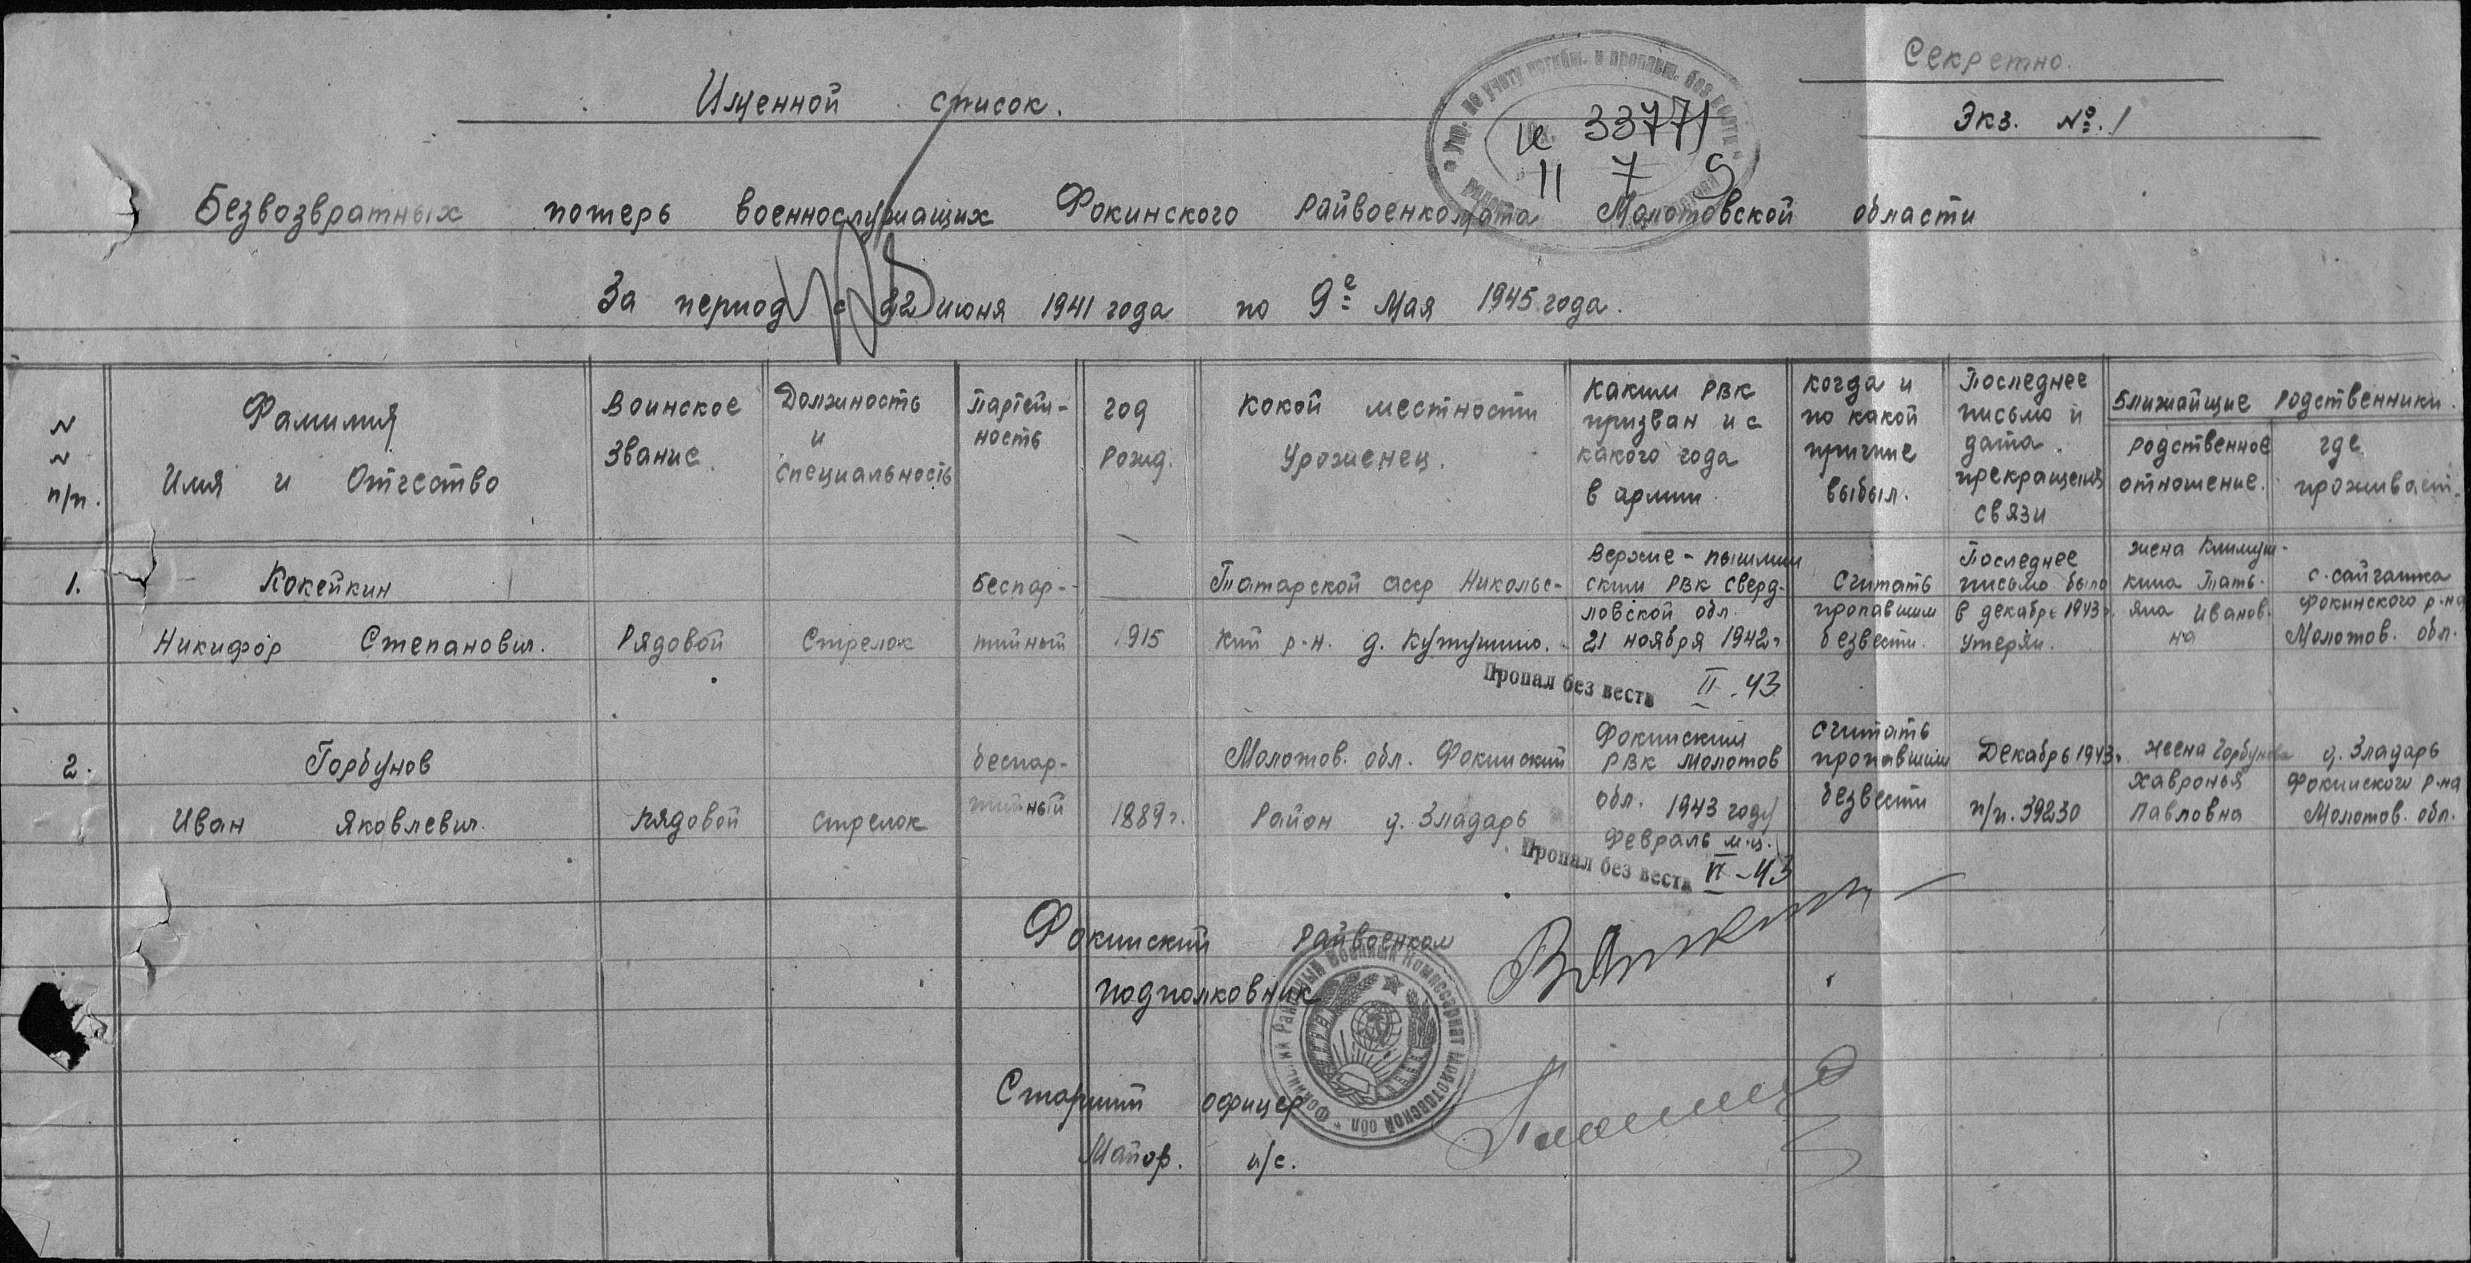 Секретно.
Именной список.
Экз. №. 1
Упр. по учету погибш. и пропавш. без вести
Вх. и 33771
11 7 9
Безвозвратных потерь военнослужащих Фокинского Райвоенкомата Молотовской области
За период с 22 июня 1941 года по 9е Мая 1945 года.
N N п/п.
Фамилия Имя и Отчество
Воинское звание.
Должность и специальность
Партей-ность
год рожд.
Какой местности Уроженец.
Каким РВК призван и с какого года в армии.
когда и по какой причине выбыл.
Последнее письмо и дата прекращения связи
Ближайщие родственники.
родственное отношение.
где проживает.
1.
Кокейкин
Никифор Степанович.
Рядовой
Стрелок
Беспар-
тийный
1915
Татарской асср Никольс-
кий р-н. д. Кутушино.
Верхне-пышмин
ским РВК Сверд-
ловской обл.
21 ноября 1942г
Считать
пропавшим
безвести.
Последнее
письмо было
в декабре 1943г.
утерян.
жена Климуш-
кина Тать-
яна Иванов-
на
с. Сайгатка
Фокинского р-на
Молотов. обл.
Пропал без вести II-43
2.
Горбунов
Иван Яковлевич.
Рядовой
стрелок
беспар-
тийный
1889г.
Молотов. обл. Фокинский
Район д. Зладарь
Фокинским
РВК Молотов
обл. 1943 году
Февраль м-ц.
Считать
пропавшим
безвести
Декабрь 1943г
п/п. 39230
жена Горбунова
Хавронья
Павловна
д. Зладарь
Фокинского р-на
Молотов. обл.
Пропал без вести VI-43
Фокинский Райвоенком
подполковник
Фокинский Районный Военный Комиссариат Молотовской обл.
Старший офицер
Майор. и/с.